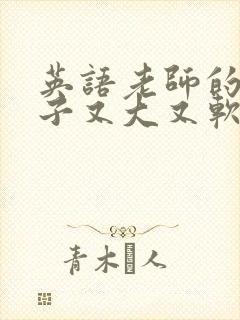 英語老師的
子又大又軟
青木 人